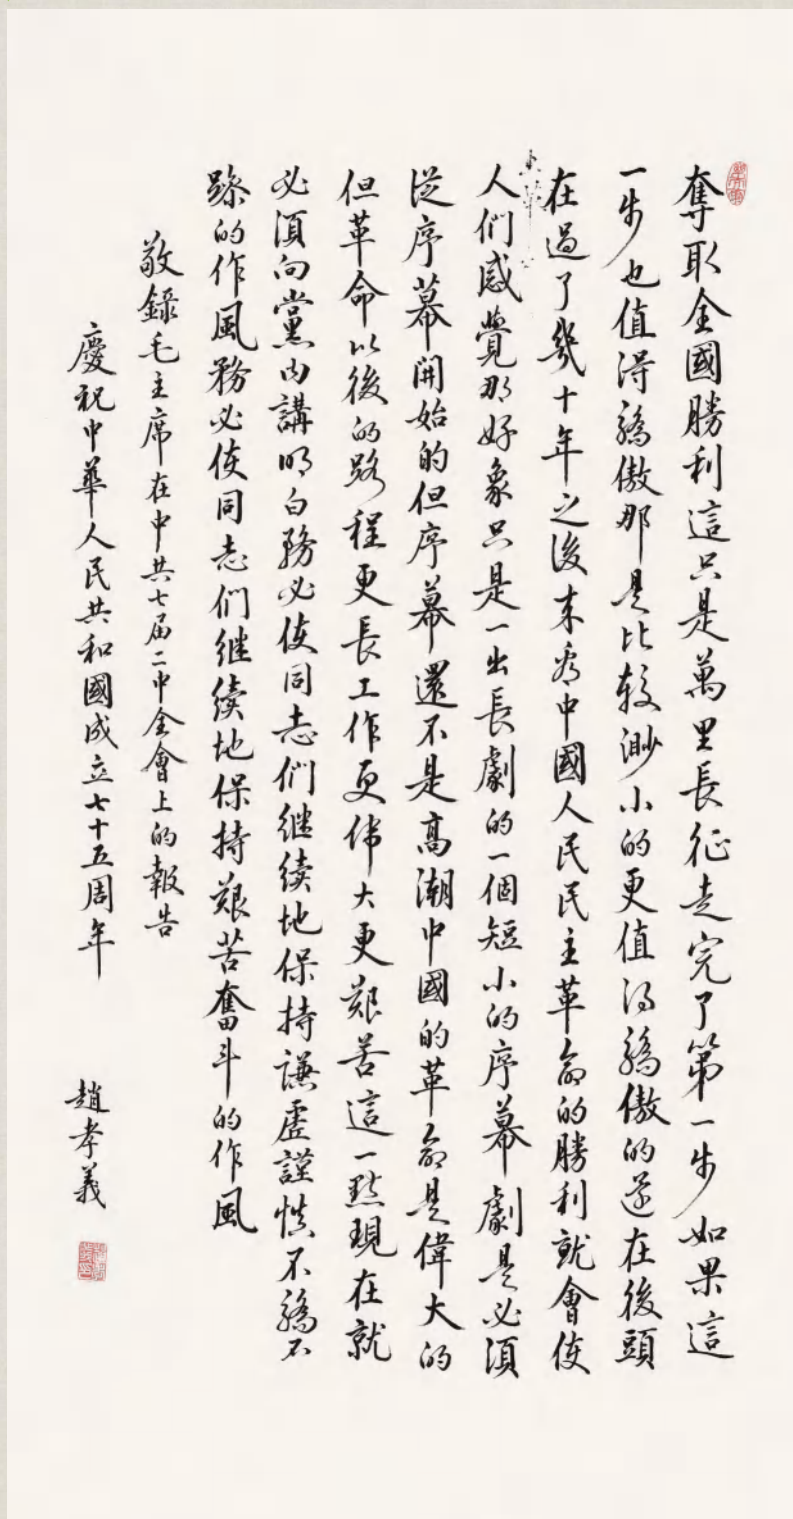 奪取全國勝利這只是萬里長征走完了第一步如果這
一步也值得驕傲那是比較渺小的更值得驕傲的還在後頭
在過了幾十年之後來看中國人民民主革命的勝利就會使
人們感覺那好象只是一出長劇的一個短小的序幕劇是必須
從序幕開始的但序幕還不是高潮中國的革命是偉大的
但革命以後的路程更長工作更偉大更艱苦這一點現在就
必須向黨內講明白務必使同志們继續地保持謙虛謹慎不驕不
躁的作風務必使同志們继續地保持艱苦奮斗的作風
敬錄毛主席在中共七届二中全會上的報告
慶祝中華人民共和國成立七十五周年
趙孝義